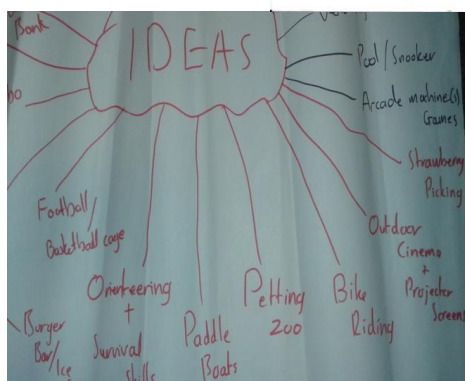 Bank
IDEAS
Pool/Snooker
Arcade machine(s)
Games
Strawberry
Picking
Outdoor
Cinema
+
Projector
Screens
Bike
Riding
Petting
Zoo
Paddle
Boats
Orienteering
+
Survival
Skills
Football/
Basketball cage
Burger
Bar/Ice